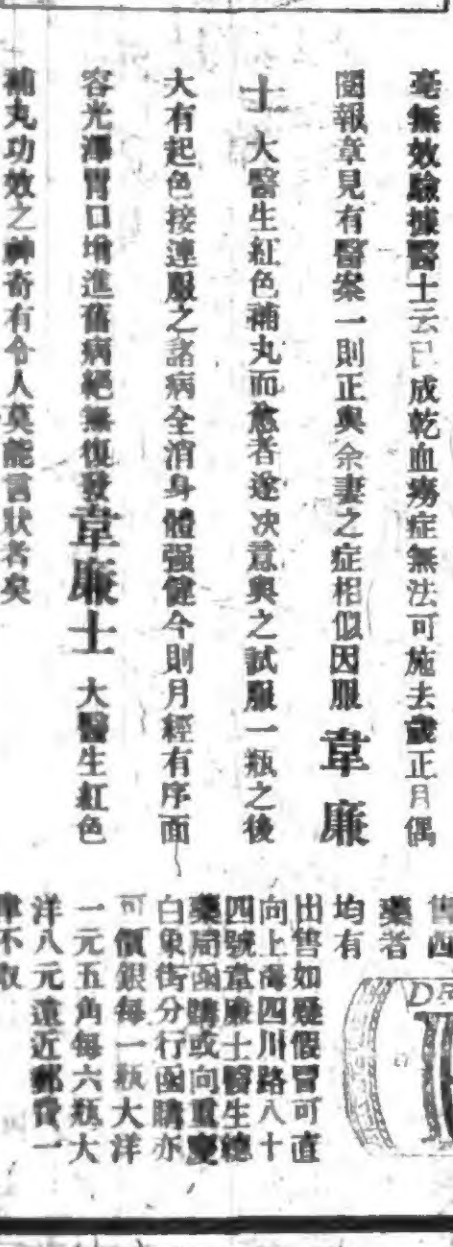 毫無效驗據醫士云已成乾血癆症無法可施去歲正月偶
閱報章見有醫案一則正與余妻之症相似因服韋廉
士大醫生紅色補丸而愈者遂决意與之試服一瓶之後
大有起色接連服之諸病全消身體强健今則月經有序面
容光澤胃口增進舊病絕無復發韋廉士大醫生紅色
補丸功效之神奇有令人莫能言狀者矣
售西
藥者
均有
出售如疑假冒可直
向上海四川路八十
四號韋廉士醫生總
藥局函購或向重慶
白象街分行函購亦
可價銀每一瓶大洋
一元五角每六瓶大
洋八元遠近郵費一
律不取
DR